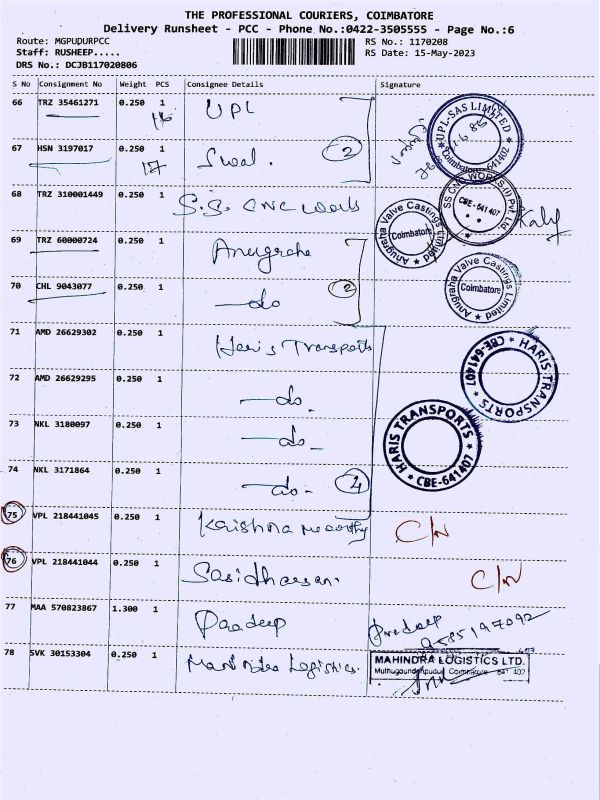 THE PROFESSIONAL COURIERS, COIMBATORE
Delivery Runsheet - PCC - Phone No.:0422-3505555 - Page No.:6
Route: MGPUDURPCC RS No.: 1170208
Staff: RUSHEEP..... RS Date: 15-May-2023
DRS No.: DCJB117020806
S No Consignment No Weight PCS Consignee Details Signature
66 TRZ 35461271 0.250 1 UPL
16
UPL-SAS LIMITED
Coimbatore-641402
67 HSN 3197017 0.250 1 Swal. 2
17
68 TRZ 310001449 0.250 1 S.S. CNC Works
SS CNC WORKS (I) Pvt. Ltd.
CBE-641 407
69 TRZ 60000724 0.250 1 Anugraha
Anugraha Valve Castings Limited
Coimbatore
70 CHL 9043077 0.250 1 -do 2
Anugraha Valve Castings Limited
Coimbatore
71 AMD 26629302 0.250 1 Haris Transports
HARIS TRANSPORTS
CBE-641407
72 AMD 26629295 0.250 1 -do.
73 NKL 3180097 0.250 1 -do-
HARIS TRANSPORTS
CBE-641407
74 NKL 3171864 0.250 1 -do- 4
75 VPL 218441045 0.250 1 Krishna moorthy C/N
76 VPL 218441044 0.250 1 Sasidharan. C/N
77 MAA 570823867 1.300 1 Pradeep Pradeep
9585197092
78 SVK 30153304 0.250 1 Mahindra Logistics.
MAHINDRA LOGISTICS LTD.
Muthugoundenpudur Coimbatore 641 407